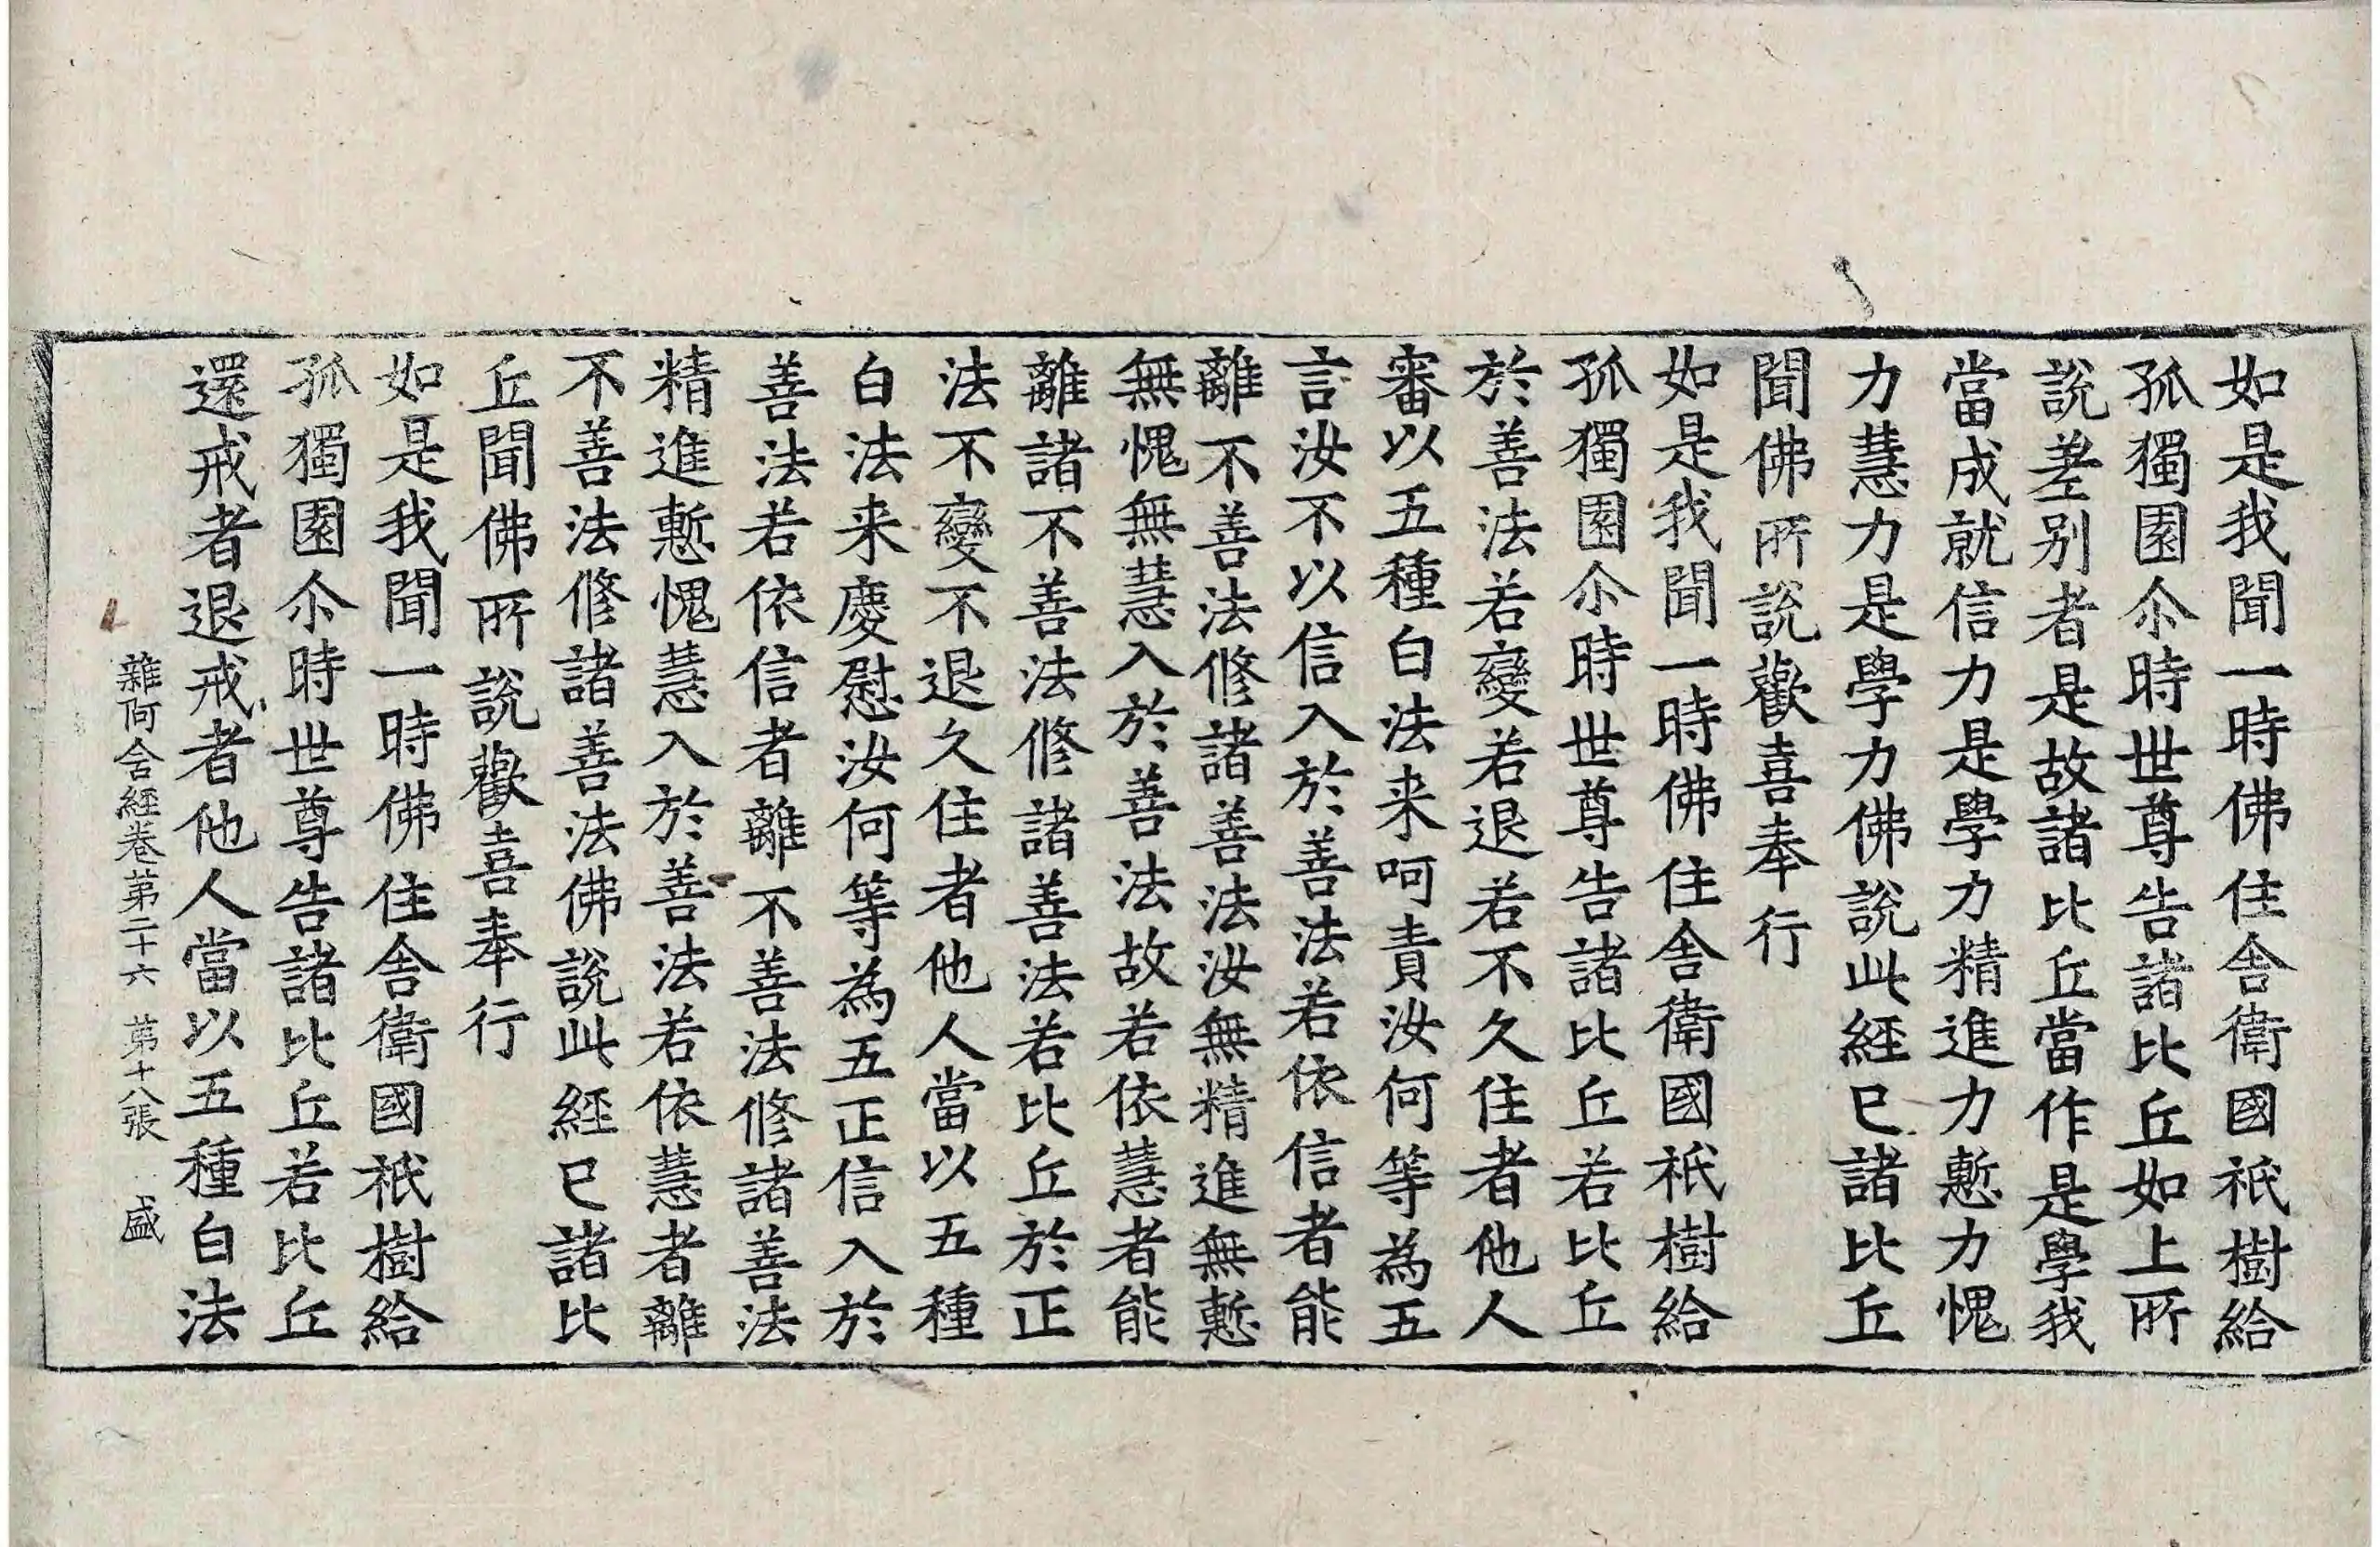 如是我聞一時佛住舎衛國祇樹給
孤獨園尒時世尊告諸比丘如上所
說差别者是故諸比丘當作是學我
當成就信力是學力精進力慙力愧
力慧力是學力佛說此經已諸比丘
聞佛所說歡喜奉行
如是我聞一時佛住舎衛國祇樹給
孤獨園尒時世尊告諸比丘若比丘
於善法若變若退若不久住者他人
審以五種白法来呵責汝何等為五
言汝不以信入於善法若依信者能
離不善法修諸善法汝無精進無慙
無愧無慧入於善法故若依慧者能
離諸不善法修諸善法若比丘於正
法不變不退久住者他人當以五種
白法来慶慰汝何等為五正信入於
善法若依信者離不善法修諸善法
精進慙愧慧入於善法若依慧者離
不善法修諸善法佛說此經已諸比
丘聞佛所說歡喜奉行
如是我聞一時佛住舎衛國祇樹給
孤獨園尒時世尊告諸比丘若比丘
還戒者退戒者他人當以五種白法
雜阿含經卷苐二十六 苐十八張 盛